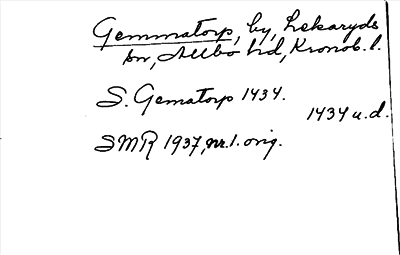 Gemmatorp, by, Lekaryds
sn, Allbo hd, Kronob. l.
S. Gematorp 1434.
1434 u.d.
SMR 1937, nr. 1. orig.